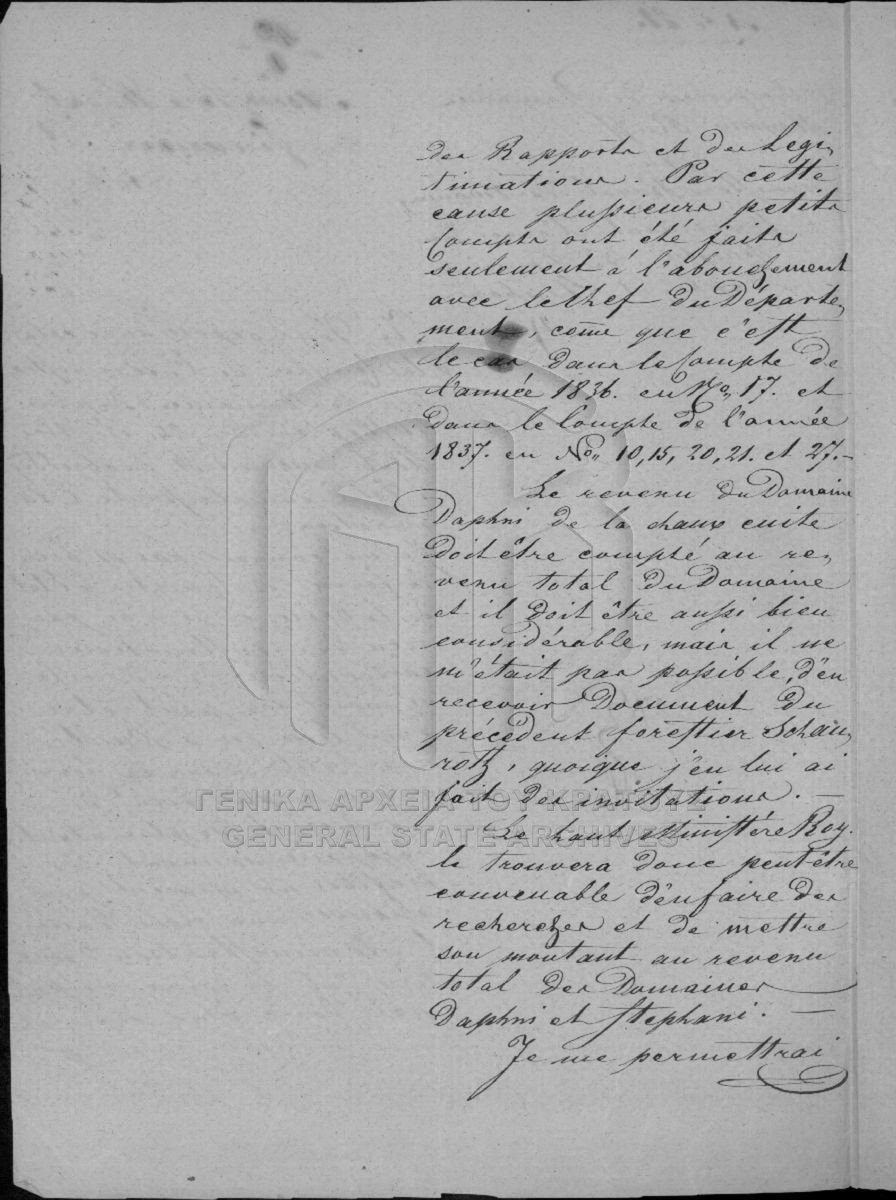 des Rapports et des Legi,
timations. Par cette
cause plussieurs petits
Compts ont été faits
seulement á l'abouchement
avec le Chef du Départe,
ment, come que c'est
le cas dans le Compte de
l'année 1836. en No. 17. et
dans le Compte de l'année
1837. en No. 10, 15, 20, 21. et 27. –
Le revenu du Domaine
Daphni de la chaux cuite
doit être compté au re,
venu total du Domaine
et il doit être aussi bien
considérable, mais il ne
m'était pas possible, d'en
recevoir Document du
précédent forestier Schau,
rotz, quoique j'en lui ai
fait des invitations. –
ΓΕΝΙΚΑ ΑΡΧΕΙΑ ΤΟΥ ΚΡΑΤΟΥΣ
GENERAL STATE ARCHIVES
Le haut Ministére Roy.
le trouvera donc peut-être
convenable d'en faire des
recherches et de mettre
son montant au revenu
total des Domaines
Daphni et Stephani. –
Je me permettrai